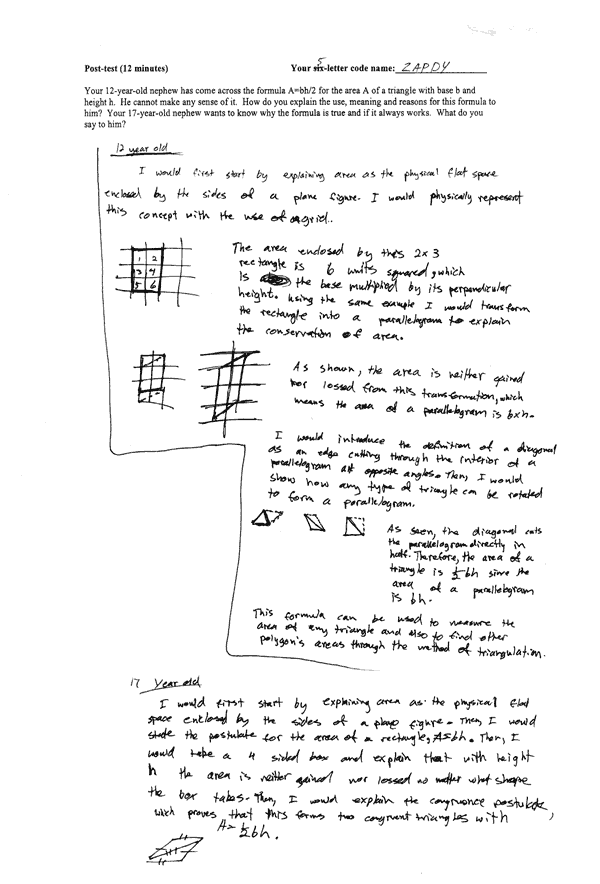 Post-test (12 minutes)
Your six-letter code name: ZAPDY
5
Your 12-year-old nephew has come across the formula A=bh/2 for the area A of a triangle with base b and
height h. He cannot make any sense of it. How do you explain the use, meaning and reasons for this formula to
him? Your 17-year-old nephew wants to know why the formula is true and if it always works. What do you
say to him?
12 year old
I would first start by explaining area as the physical flat space
enclosed by the sides of a plane figure. I would physically represent
this concept with the use of a grid.
1 2
3 4
5 6
The area enclosed by this 2x3
rectangle is 6 units squared, which
is the base multiplied by its perpendicular
height. Using the same example I would transform
the rectangle into a parallelogram to explain
the conservation of area.
As shown, the area is neither gained
nor lossed from this transformation, which
means the area of a parallelogram is bxh.
I would introduce the definition of a diagonal
as an edge cutting through the interior of a
parallelogram at opposite angles. Then, I would
show how any type of triangle can be rotated
to form a parallelogram.
As seen, the diagonal cuts
the parallelogram directly in
half. Therefore, the area of a
triangle is ½bh since the
area of a parallelogram
is bh.
This formula can be used to measure the
area of any triangle and also to find other
polygon's areas through the method of triangulation.
17 year old
I would first start by explaining area as the physical flat
space enclosed by the sides of a plane figure. Then, I would
state the postulate for the area of a rectangle, A=bh. Then, I
would take a 4 sided box and explain that with height
h the area is neither gained nor lossed no matter what shape
the box takes. Then, I would explain the congruence postulate
which proves that this forms two congruent triangles with
A=½bh.